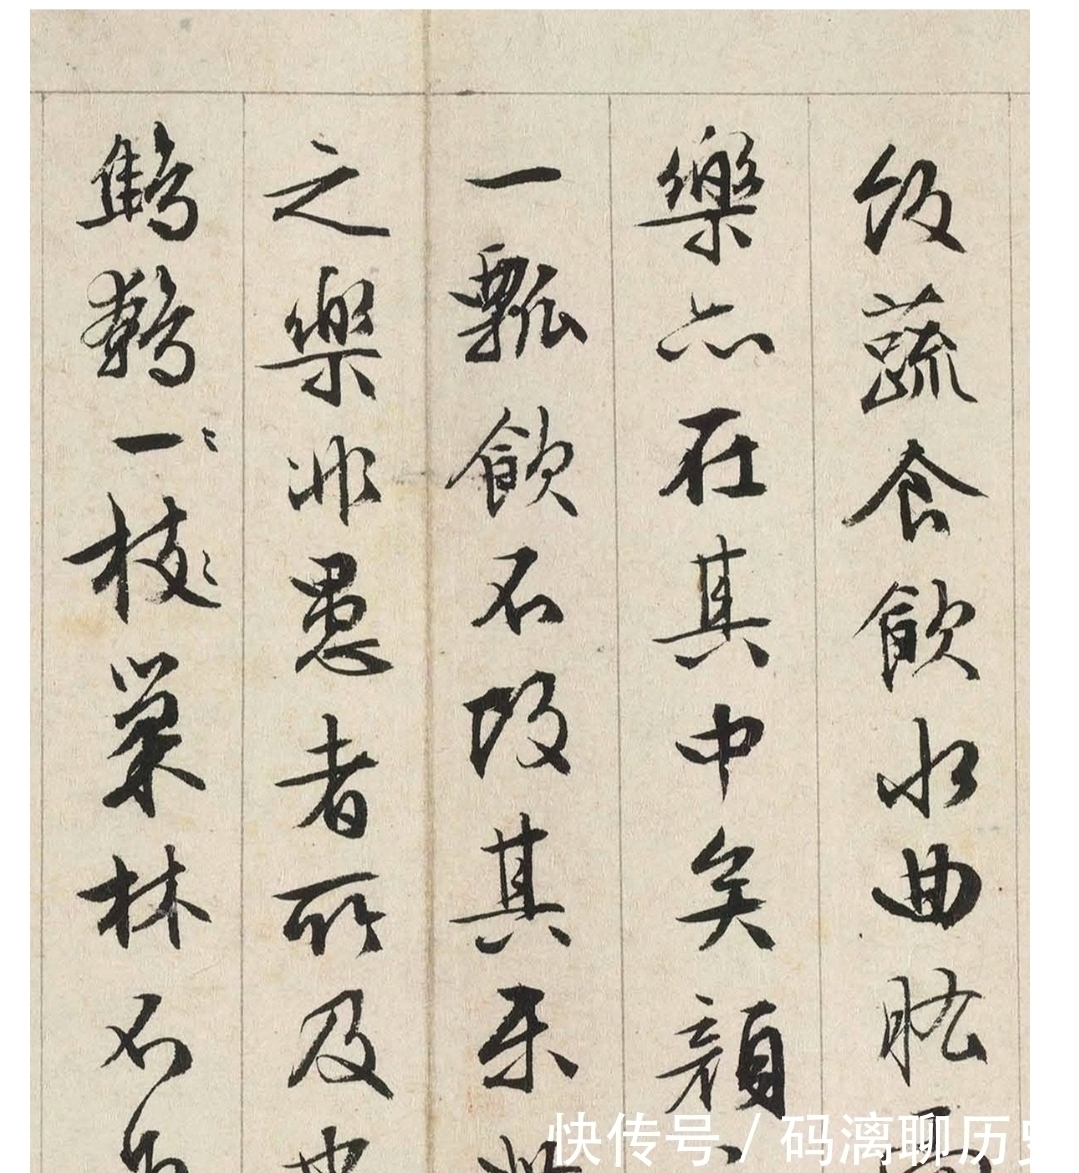 飯蔬食飲水曲肱而
樂亦在其中矣顏
一瓢飲不改其樂此
之樂非愚者所及也
鷦鷯一枝巢林不
快传号 / 码漓聊历史